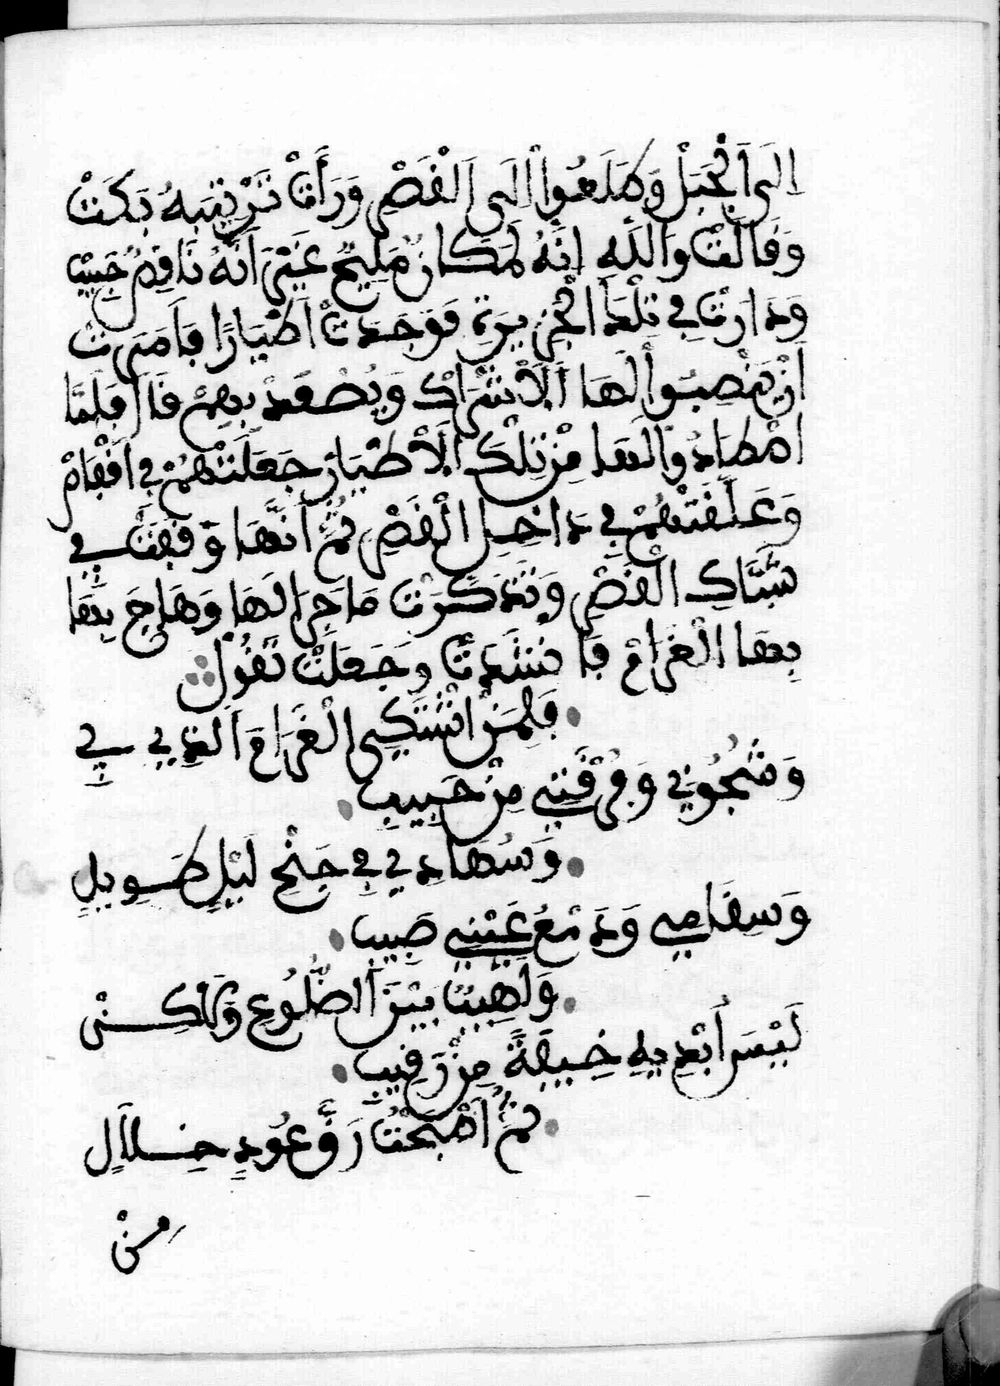 الَى الْجَبَلْ وَطَلَعُواْ الَى الْقَصْرِ وَرَأَتْ تَرْتِيبَهُ بَكَتْ
وَقَالَتْ وَاللَّهِ اِنَّهُ لَمَكَانٌ مَلِيحٌ غَيْرَ اَنَّهُ نَاقِصٌ حَبِيبًا
وَدَارَتْ فِي تِلْكَ الْجَزِيرَةِ فَوَجَدَتْ اَطْيَارًا فَاَمَرَتْ
اَنْ يَنْصِبُواْ لَهَا اَلْاَشْرَاكَ وَيُصْعَدْ بِهِمْ قَالَ فَلَمَّا
اصْطَادُواْ لَهَا مِنْ تِلْكَ الْاَطْيَارِ جَعَلَتْهُمْ فِي اَقْفَاصْ
وَعَلَّقَتْهُمْ فِي دَاخِلِ الْقَصْرِ ثُمَّ اَنَّهَا وَقَفَتْ فِي
شُبَّاكِ الْقَصْرِ وَتَذَكَّرَتْ مَا جَرَا لَهَا وَهَاجَ بِهَا
بِهَا الْغَرَامْ فَانْشَدَتْ وَجَعَلَتْ تَقُولْ
فَلِمَنْ اَشْتَكِي الْغَرَامَ اَلَّذِي بِي
وَشُجُونِي وَفُرْقَتِي مِنْ حَبِيبِ
وَسُهَادِي فِي جَنْحِ لَيْلٍ طَوِيلٍ
وَسِقَامِي وَدَمْعُ عَيْنِي صَبِيبِ
وَلَهِيبًا بَيْنَ الضُّلُوعِ وَلَاكِنِّي
لَيْسَ أُبْدِيهِ خِيفَةً مِنْ رَقِيبِ
ثُمَّ اَصْبَحْتُ رَقَّ عُودٍ خِلَالٍ
مِنْ